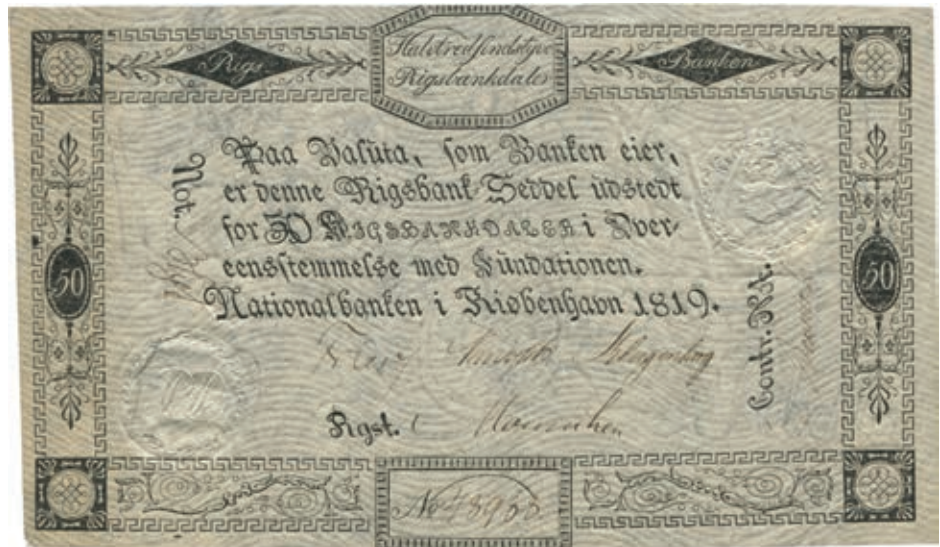 Rigs
Halvtredsindstyve
Rigsbankdaler
Banken
Paa Valuta, som Banken eier,
er denne Rigsbank-Seddel udstedt
for 50 RIGSBANKDALER i Over-
eensstemmelse med Fundationen.
Nationalbanken i Kiøbenhavn 1819.
Not.
50
50
Contr.
Rgst.
No